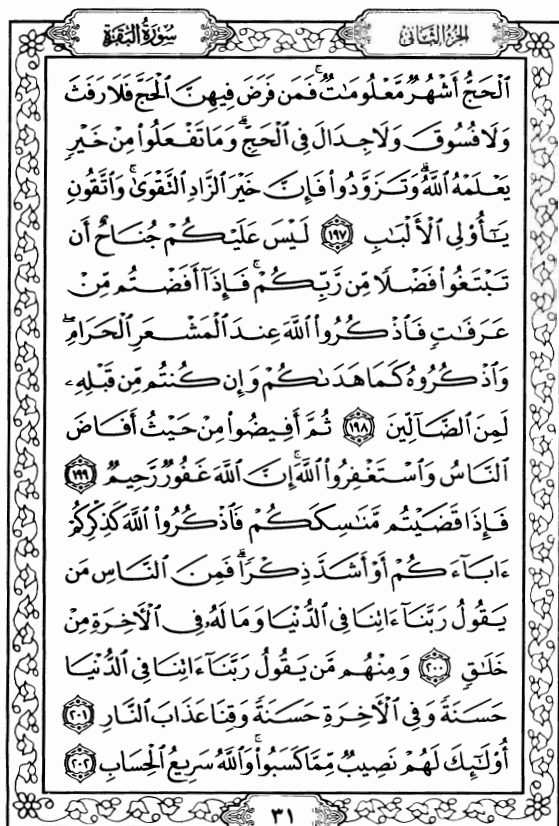 الجزء الثاني
سورة البقرة
ٱلْحَجُّ أَشْهُرٌ مَّعْلُومَٰتٌ ۚ فَمَن فَرَضَ فِيهِنَّ ٱلْحَجَّ فَلَا رَفَثَ
وَلَا فُسُوقَ وَلَا جِدَالَ فِى ٱلْحَجِّ ۗ وَمَا تَفْعَلُوا۟ مِنْ خَيْرٍ
يَعْلَمْهُ ٱللَّهُ ۗ وَتَزَوَّدُوا۟ فَإِنَّ خَيْرَ ٱلزَّادِ ٱلتَّقْوَىٰ ۚ وَٱتَّقُونِ
يَٰٓأُو۟لِى ٱلْأَلْبَٰبِ ١٩٧ لَيْسَ عَلَيْكُمْ جُنَاحٌ أَن
تَبْتَغُوا۟ فَضْلًا مِّن رَّبِّكُمْ ۚ فَإِذَآ أَفَضْتُم مِّنْ
عَرَفَٰتٍ فَٱذْكُرُوا۟ ٱللَّهَ عِندَ ٱلْمَشْعَرِ ٱلْحَرَامِ ۖ
وَٱذْكُرُوهُ كَمَا هَدَىٰكُمْ وَإِن كُنتُم مِّن قَبْلِهِۦ
لَمِنَ ٱلضَّآلِّينَ ١٩٨ ثُمَّ أَفِيضُوا۟ مِنْ حَيْثُ أَفَاضَ
ٱلنَّاسُ وَٱسْتَغْفِرُوا۟ ٱللَّهَ ۚ إِنَّ ٱللَّهَ غَفُورٌ رَّحِيمٌ ١٩٩
فَإِذَا قَضَيْتُم مَّنَٰسِكَكُمْ فَٱذْكُرُوا۟ ٱللَّهَ كَذِكْرِكُمْ
ءَابَآءَكُمْ أَوْ أَشَدَّ ذِكْرًا ۗ فَمِنَ ٱلنَّاسِ مَن
يَقُولُ رَبَّنَآ ءَاتِنَا فِى ٱلدُّنْيَا وَمَا لَهُۥ فِى ٱلْءَاخِرَةِ مِنْ
خَلَٰقٍ ٢٠٠ وَمِنْهُم مَّن يَقُولُ رَبَّنَآ ءَاتِنَا فِى ٱلدُّنْيَا
حَسَنَةً وَفِى ٱلْءَاخِرَةِ حَسَنَةً وَقِنَا عَذَابَ ٱلنَّارِ ٢٠١
أُو۟لَٰٓئِكَ لَهُمْ نَصِيبٌ مِّمَّا كَسَبُوا۟ ۚ وَٱللَّهُ سَرِيعُ ٱلْحِسَابِ ٢٠٢
٣١